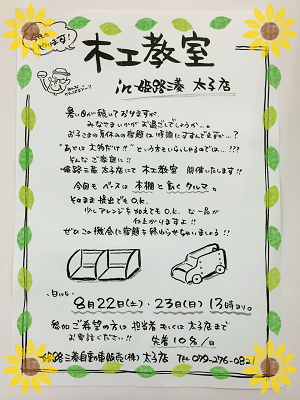 やります!
木工教室
in 姫路三菱 太子店
暑い日が続いておりますが
みなさまいかがお過ごしでしょうか…。
お子さまの夏休みの宿題は順調にすすんでますか…?
"あとは大物だけ!!" という方もいらっしゃるのでは…???
そんなご家庭に!!
姫路三菱 太子店にて 木工教室 開催いたします!!
今回も ベースは 本棚と動くクルマ。
そのまま提出でもO.K.
少しアレンジを加えてもO.K. な一品が
仕上がりますよ!!
ぜひこの機会に宿題を終わらせちゃいましょう!!
日にち
8月22日(土)・23日(日) 13時より。
参加ご希望の方は 担当者もしくは太子店まで
お電話ください!! 先着10名/日
姫路三菱自動車販売(株) 太子店 TEL 079-276-0821